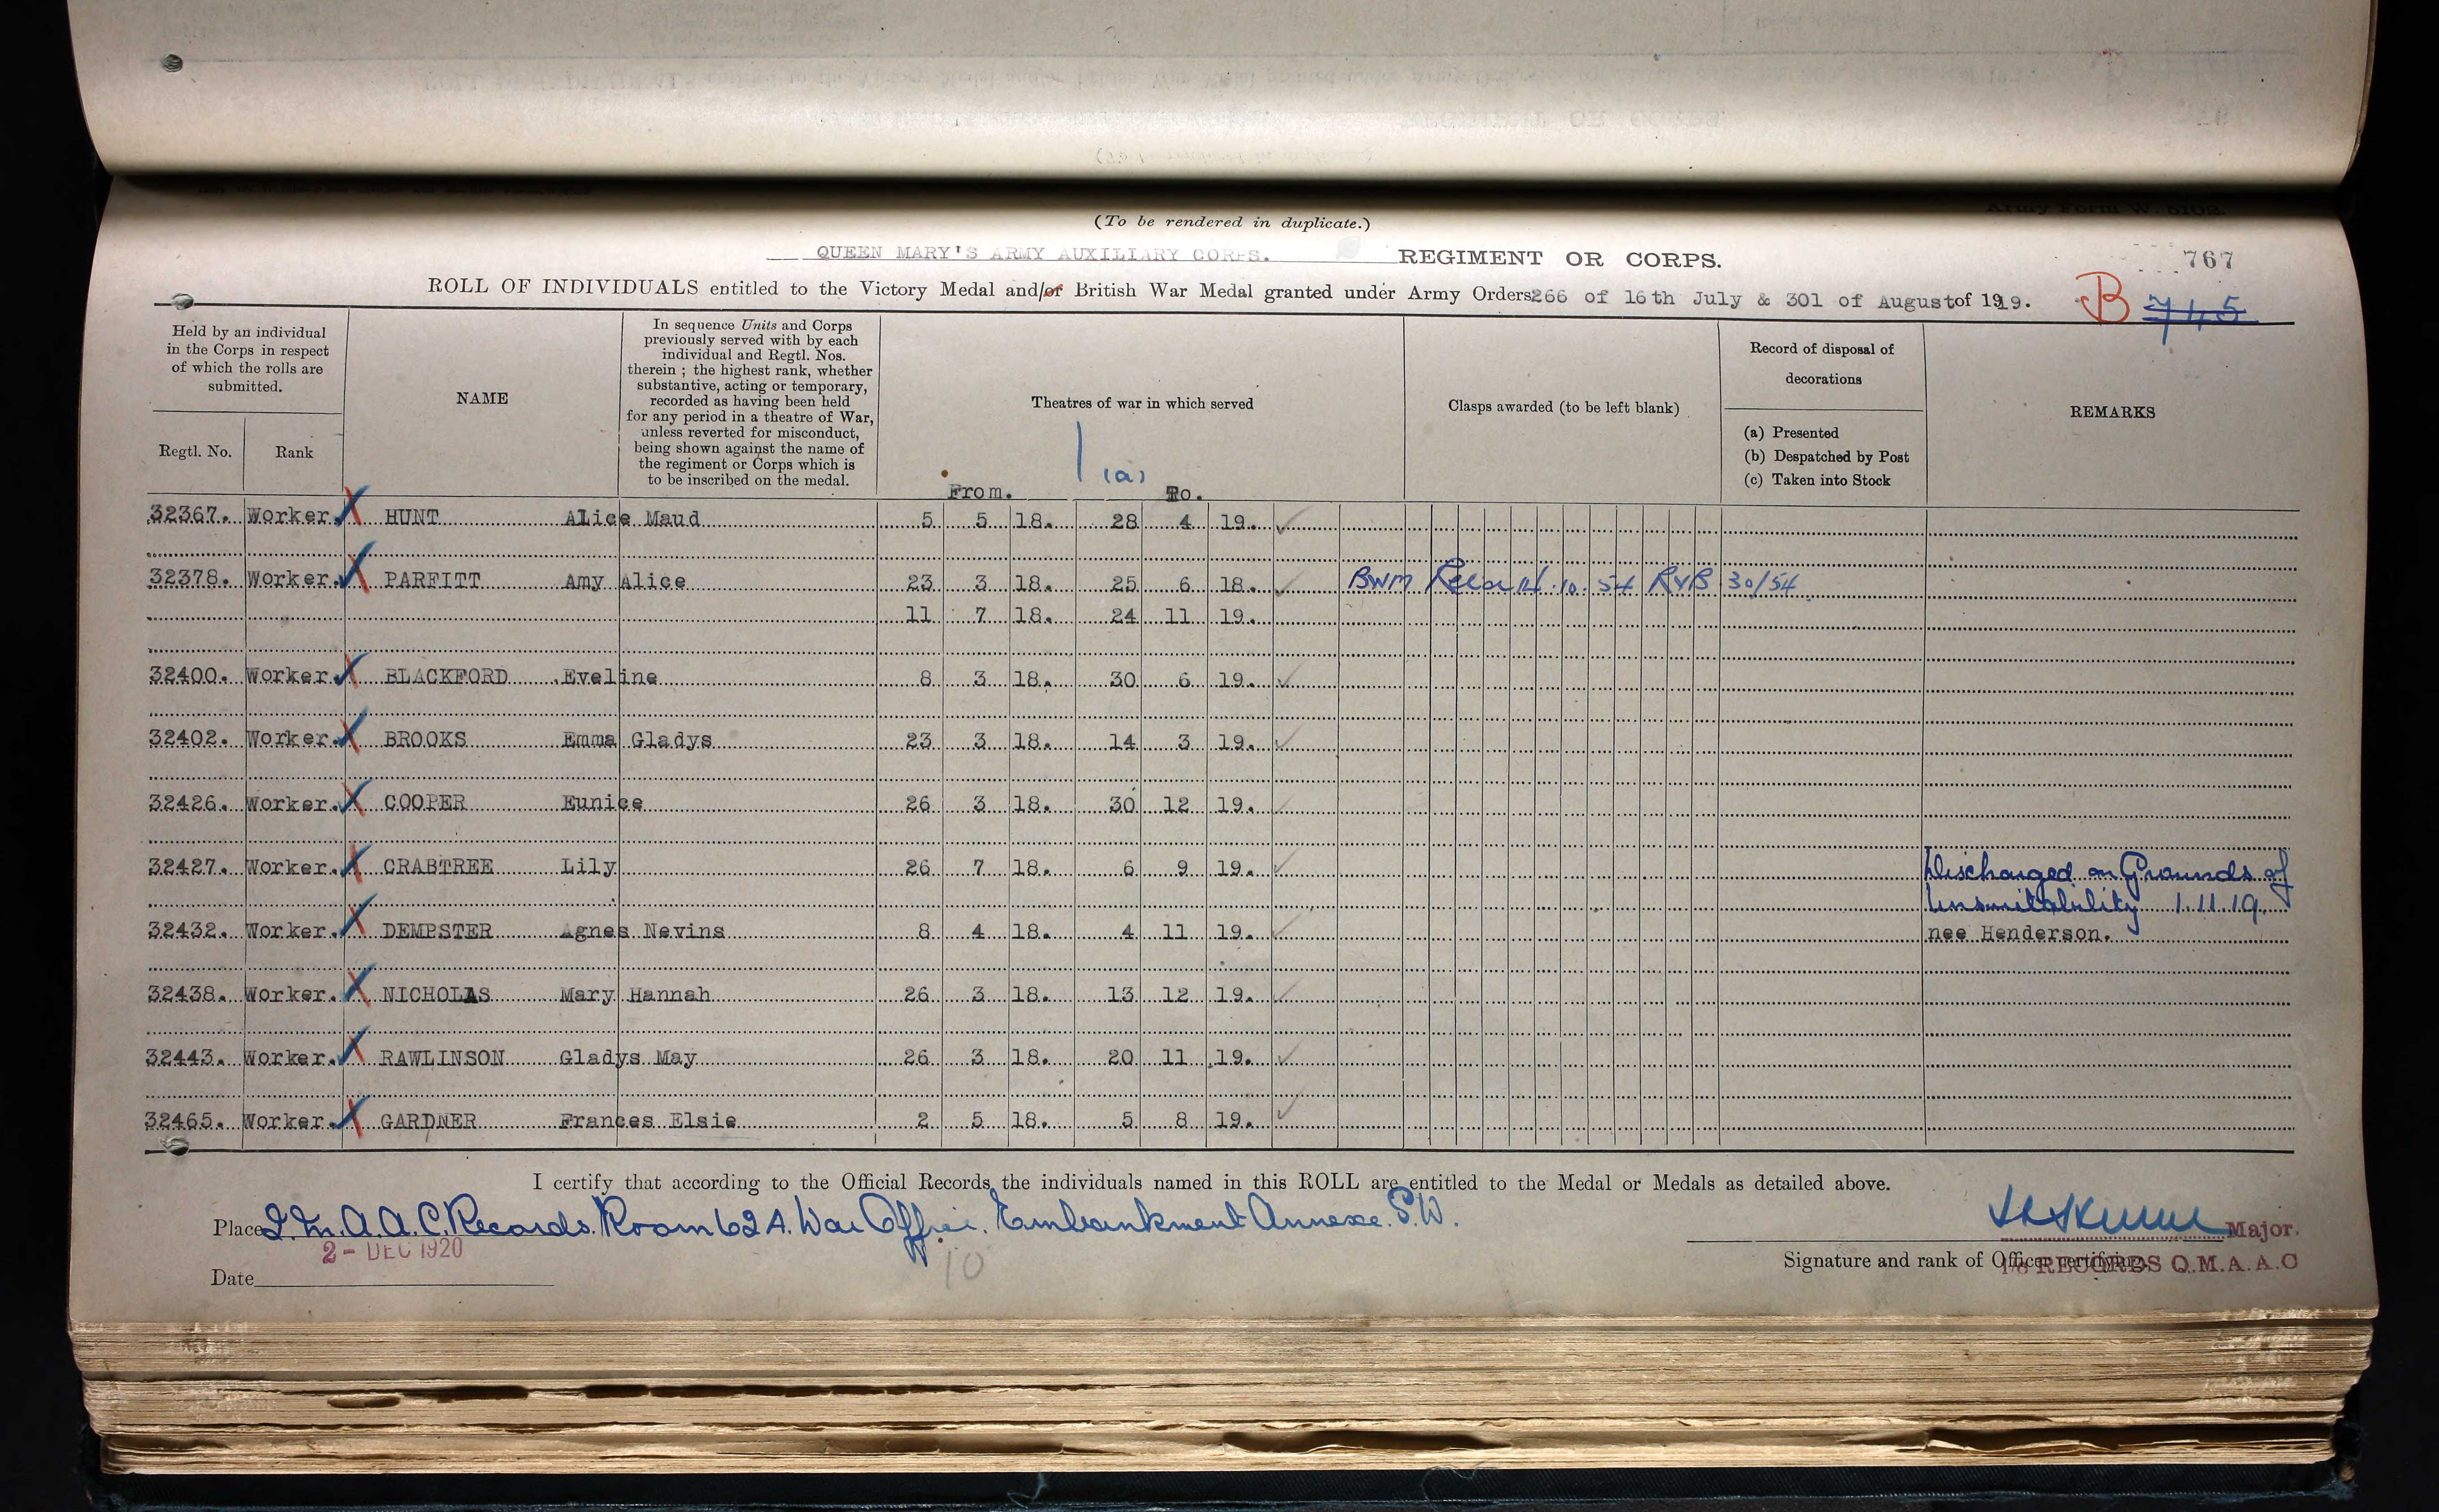 (To be rendered in duplicate.)
QUEEN MARY'S ARMY AUXILIARY CORPS. REGIMENT OR CORPS. 767
ROLL OF INDIVIDUALS entitled to the Victory Medal and/or British War Medal granted under Army Orders 266 of 16th July & 301 of August of 1919. B 745
Held by an individual
in the Corps in respect
of which the rolls are
submitted.
Regtl. No. Rank
NAME
In sequence Units and Corps
previously served with by each
individual and Regtl. Nos.
therein ; the highest rank, whether
substantive, acting or temporary,
recorded as having been held
for any period in a theatre of War,
unless reverted for misconduct,
being shown against the name of
the regiment or Corps which is
to be inscribed on the medal.
Theatres of war in which served
1 (a)
From. To.
Clasps awarded (to be left blank)
Record of disposal of
decorations
(a) Presented
(b) Despatched by Post
(c) Taken into Stock
REMARKS
32367. Worker. HUNT Alice Maud 5 5 18. 28 4 19.
32378. Worker. PARFITT Amy Alice 23 3 18. 25 6 18. BWM 10. 54 RVB 30/54
11 7 18. 24 11 19.
32400. Worker. BLACKFORD Eveline 8 3 18. 30 6 19.
32402. Worker. BROOKS Emma Gladys 23 3 18. 14 3 19.
32426. Worker. COOPER Eunice 26 3 18. 30 12 19.
32427. Worker. CRABTREE Lily 26 7 18. 6 9 19. Discharged on Grounds of
Unsuitability 1.11.19.
32432. Worker. DEMPSTER Agnes Nevins 8 4 18. 4 11 19. nee Henderson.
32438. Worker. NICHOLAS Mary Hannah 26 3 18. 13 12 19.
32443. Worker. RAWLINSON Gladys May 26 3 18. 20 11 19.
32465. Worker. GARDNER Frances Elsie 2 5 18. 5 8 19.
I certify that according to the Official Records the individuals named in this ROLL are entitled to the Medal or Medals as detailed above.
Place Q.M.A.A.C. Records. Room 62A. War Office. Embankment Annexe. S.W.
Major.
2 - DEC 1920
Signature and rank of Officer certifying.
RECORDS Q.M.A.A.C
Date
10